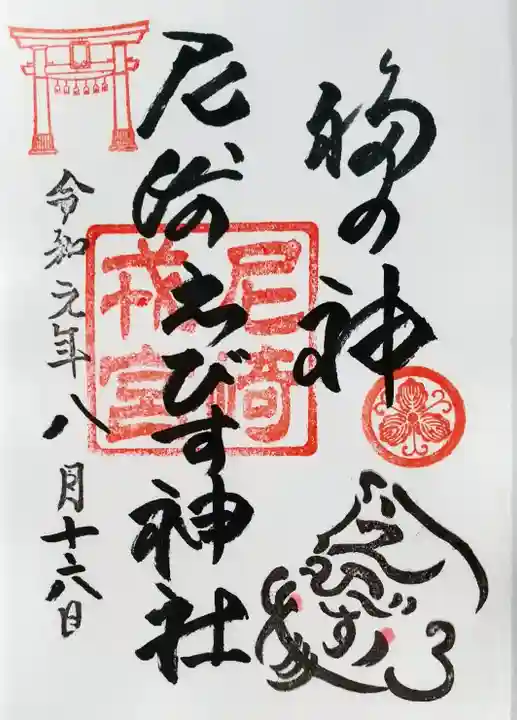 福の神
尼崎えびす神社
令和元年八月十六日
尼崎
戎宮
えびす